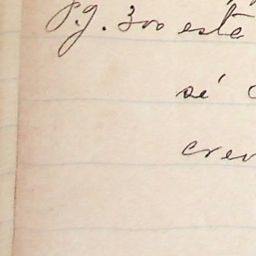 pg. 300 esta
sé
crev